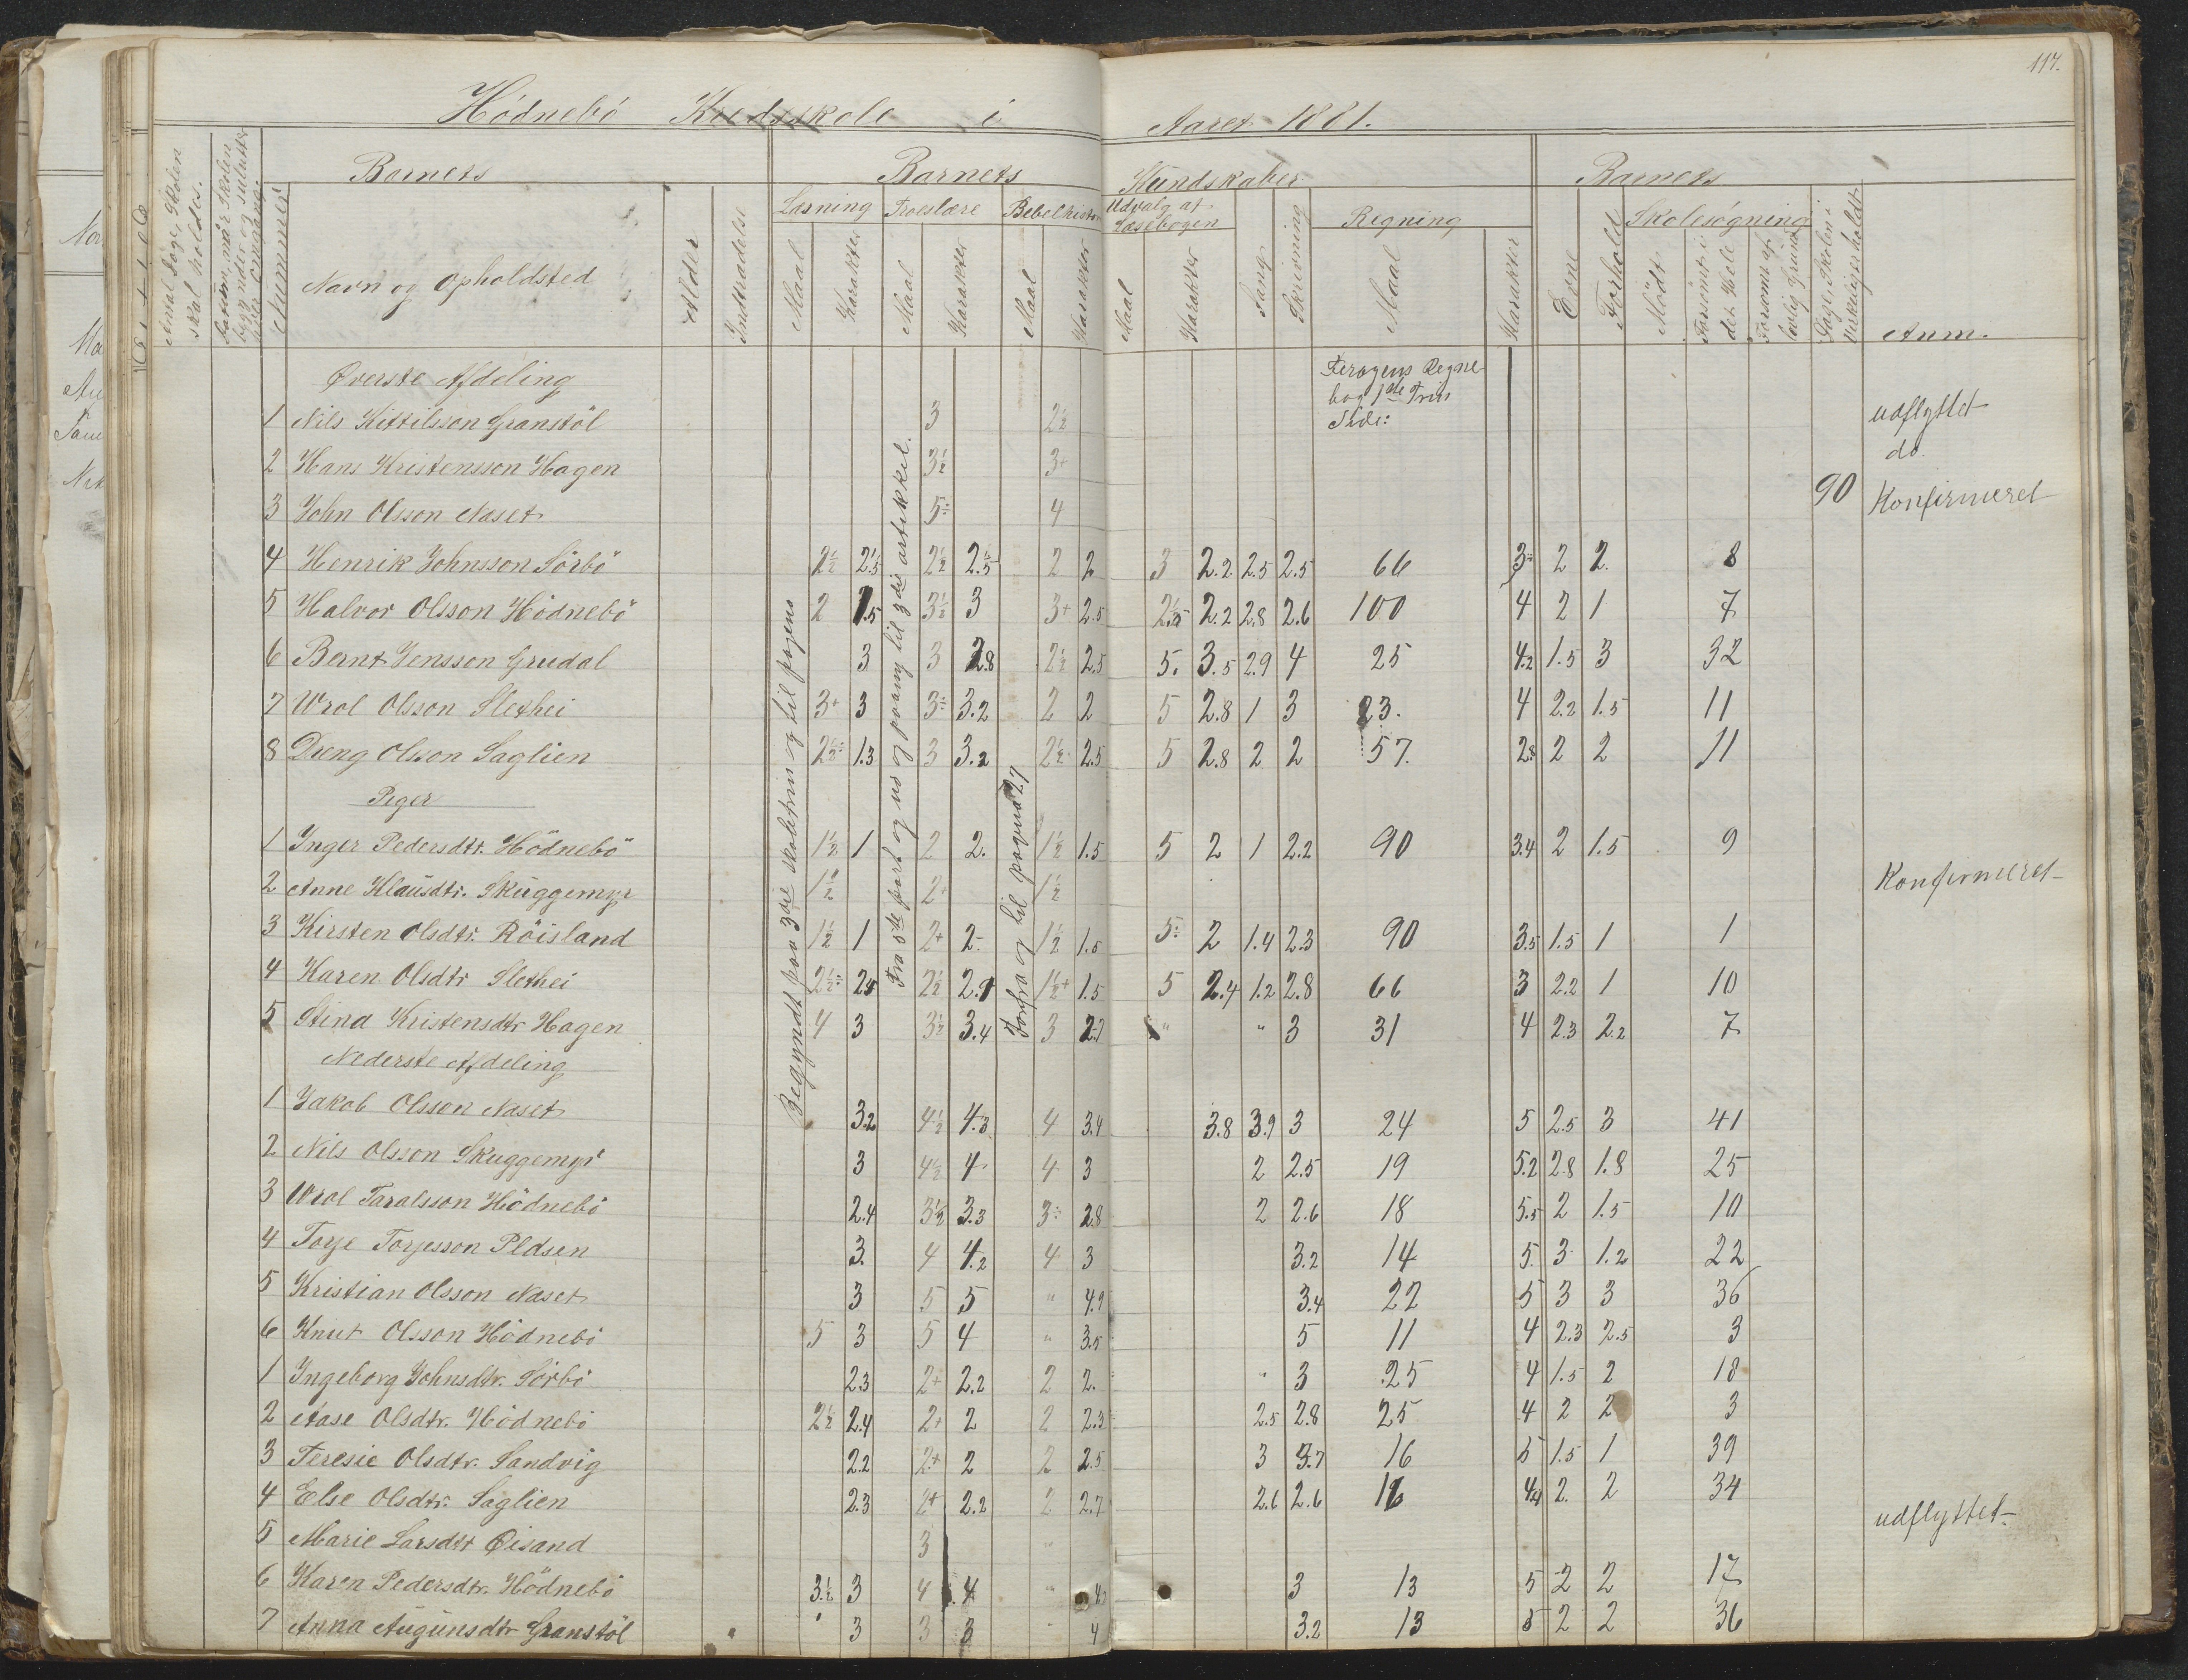 117.
Hödnebö Kredsskole i Aaret 1881.
Barnets Barnets Kundskaber Barnets
Antal Dage, Skolen skal holdes.
Datum, når Skolen begynder og slutter
Nummer
Navn og Opholdsted
Alder
Indtrædelse
Læsning Troeslære Bibelhistor Udvalg af Læsebogen Sang Skrivning Regning Evne Forhold Skolesøgning
Maal Karakter Maal Karakter Maal Karakter Maal Karakter Maal Karakter Mödt Forsömt i det Hele Forsömt af lovlig Grund Dage, Skolen i Virkeligh. holdt Anm.
Begyndt paa 3die skoletrin og til pagens
Fra 5te part og ud og paany til 3die artikkel.
Forfra og til pagina 27
Øverste Afdeling
Regnebog 1ste Trin
Side:
1 Nils Kittilsson Granstöl 3 2½ udflyttet
2 Hans Kristensson Hagen 3½ 3+ do
3 John Olsson Naset 5÷ 4 90 Konfirmeret
4 Henrik Johnsson Sörbö 2½ 2.5 2½ 2.5 2 2 3 2.2 2.5 2.5 66 3÷ 2 2. 8
5 Halvor Olsson Hödnebö 2 1.5 3½ 3 3+ 2.5 2.5 2.2 2.8 2.6 100 4 2 1 7
6 Bernt Jensson Grudal 3 3 2.8 2½ 2.5 5. 3.5 2.9 4 25 4.2 1.5 3 32
7 Wrol Olsson Slethei 3+ 3 3÷ 3.2 2 2 5 2.8 1 3 23. 4 2.2 1.5 11
8 Dreng Olsson Saglien 2½÷ 1.3 3 3.2 2½ 2.5 5 2.8 2 2 57. 2.8 2 2 11
Piger
1 Inger Pedersdtr. Hödnebö 1½ 1 2 2. 1½ 1.5 5 2 1 2.2 90 3.4 2 1.5 9
2 Anne Klausdtr. Skuggemyr 1½ 2+ 1½ Konfirmeret
3 Kirsten Olsdtr. Röisland 1½ 1 2+ 2- 1½ 1.5 5÷ 2 1.4 2.3 90 3.5 1.5 1 1
4 Karen Olsdtr Slethei 2½÷ 2.5 2½ 2.1 1½+ 1.5 5 2.4 1.2 2.8 66 3 2.2 1 10
5 Stina Kristensdtr Hagen 4 3 3½ 3.4 3 2.7 " " 3 31 4 2.3 2.2 7
Nederste Afdeling
1 Jakob Olsson Naset 3.2 4½ 4.3 4 3.4 3.8 3.9 3 24 5 2.5 3 41
2 Nils Olsson Skuggemyr 3 4½ 4 4 3 2 2.5 19 5.2 2.8 1.8 25
3 Wrol Taralsson Hödnebö 2.4 3½ 3.3 3÷ 2.8 2 2.6 18 5.5 2 1.5 10
4 Torje Torjesson Pldsen 3. 4 4.2 4 3 3.2 14 5. 3 1.2 22
5 Kristian Olsson Naset 3 5 5 " 4.9 3.4 22 5 3 3 36
6 Knut Olsson Hödnebö 5 3 5 4 " 3.5 5 11 4 2.3 2.5 3
1 Ingeborg Johnsdtr. Sörbö 2.3 2+ 2.2 2 2. " 3 25 4 1.5 2 18
2 Aase Olsdtr. Hödnebö 2½ 2.4 2+ 2 2 2.3 2.5 2.8 25 4 2 2 3
3 Teresie Olsdtr. Sandvig 2.2 2+ 2 2 2.5 3 3.7 16 5 1.5 1 39
4 Else Olsdtr. Saglien 2.3 2+ 2.2 2 2.7 2.6 2.6 16 4.4 2. 2 34
5 Marie Larsdtr Øisand 3 " udflyttet
6 Karen Pedersdtr. Hödnebö 3½ 3 4 4 " 3 13 5 2 2 17
7 Anna Augunsdtr Granstöl 3 3 3 " 4 3.2 13 5 2 2 36